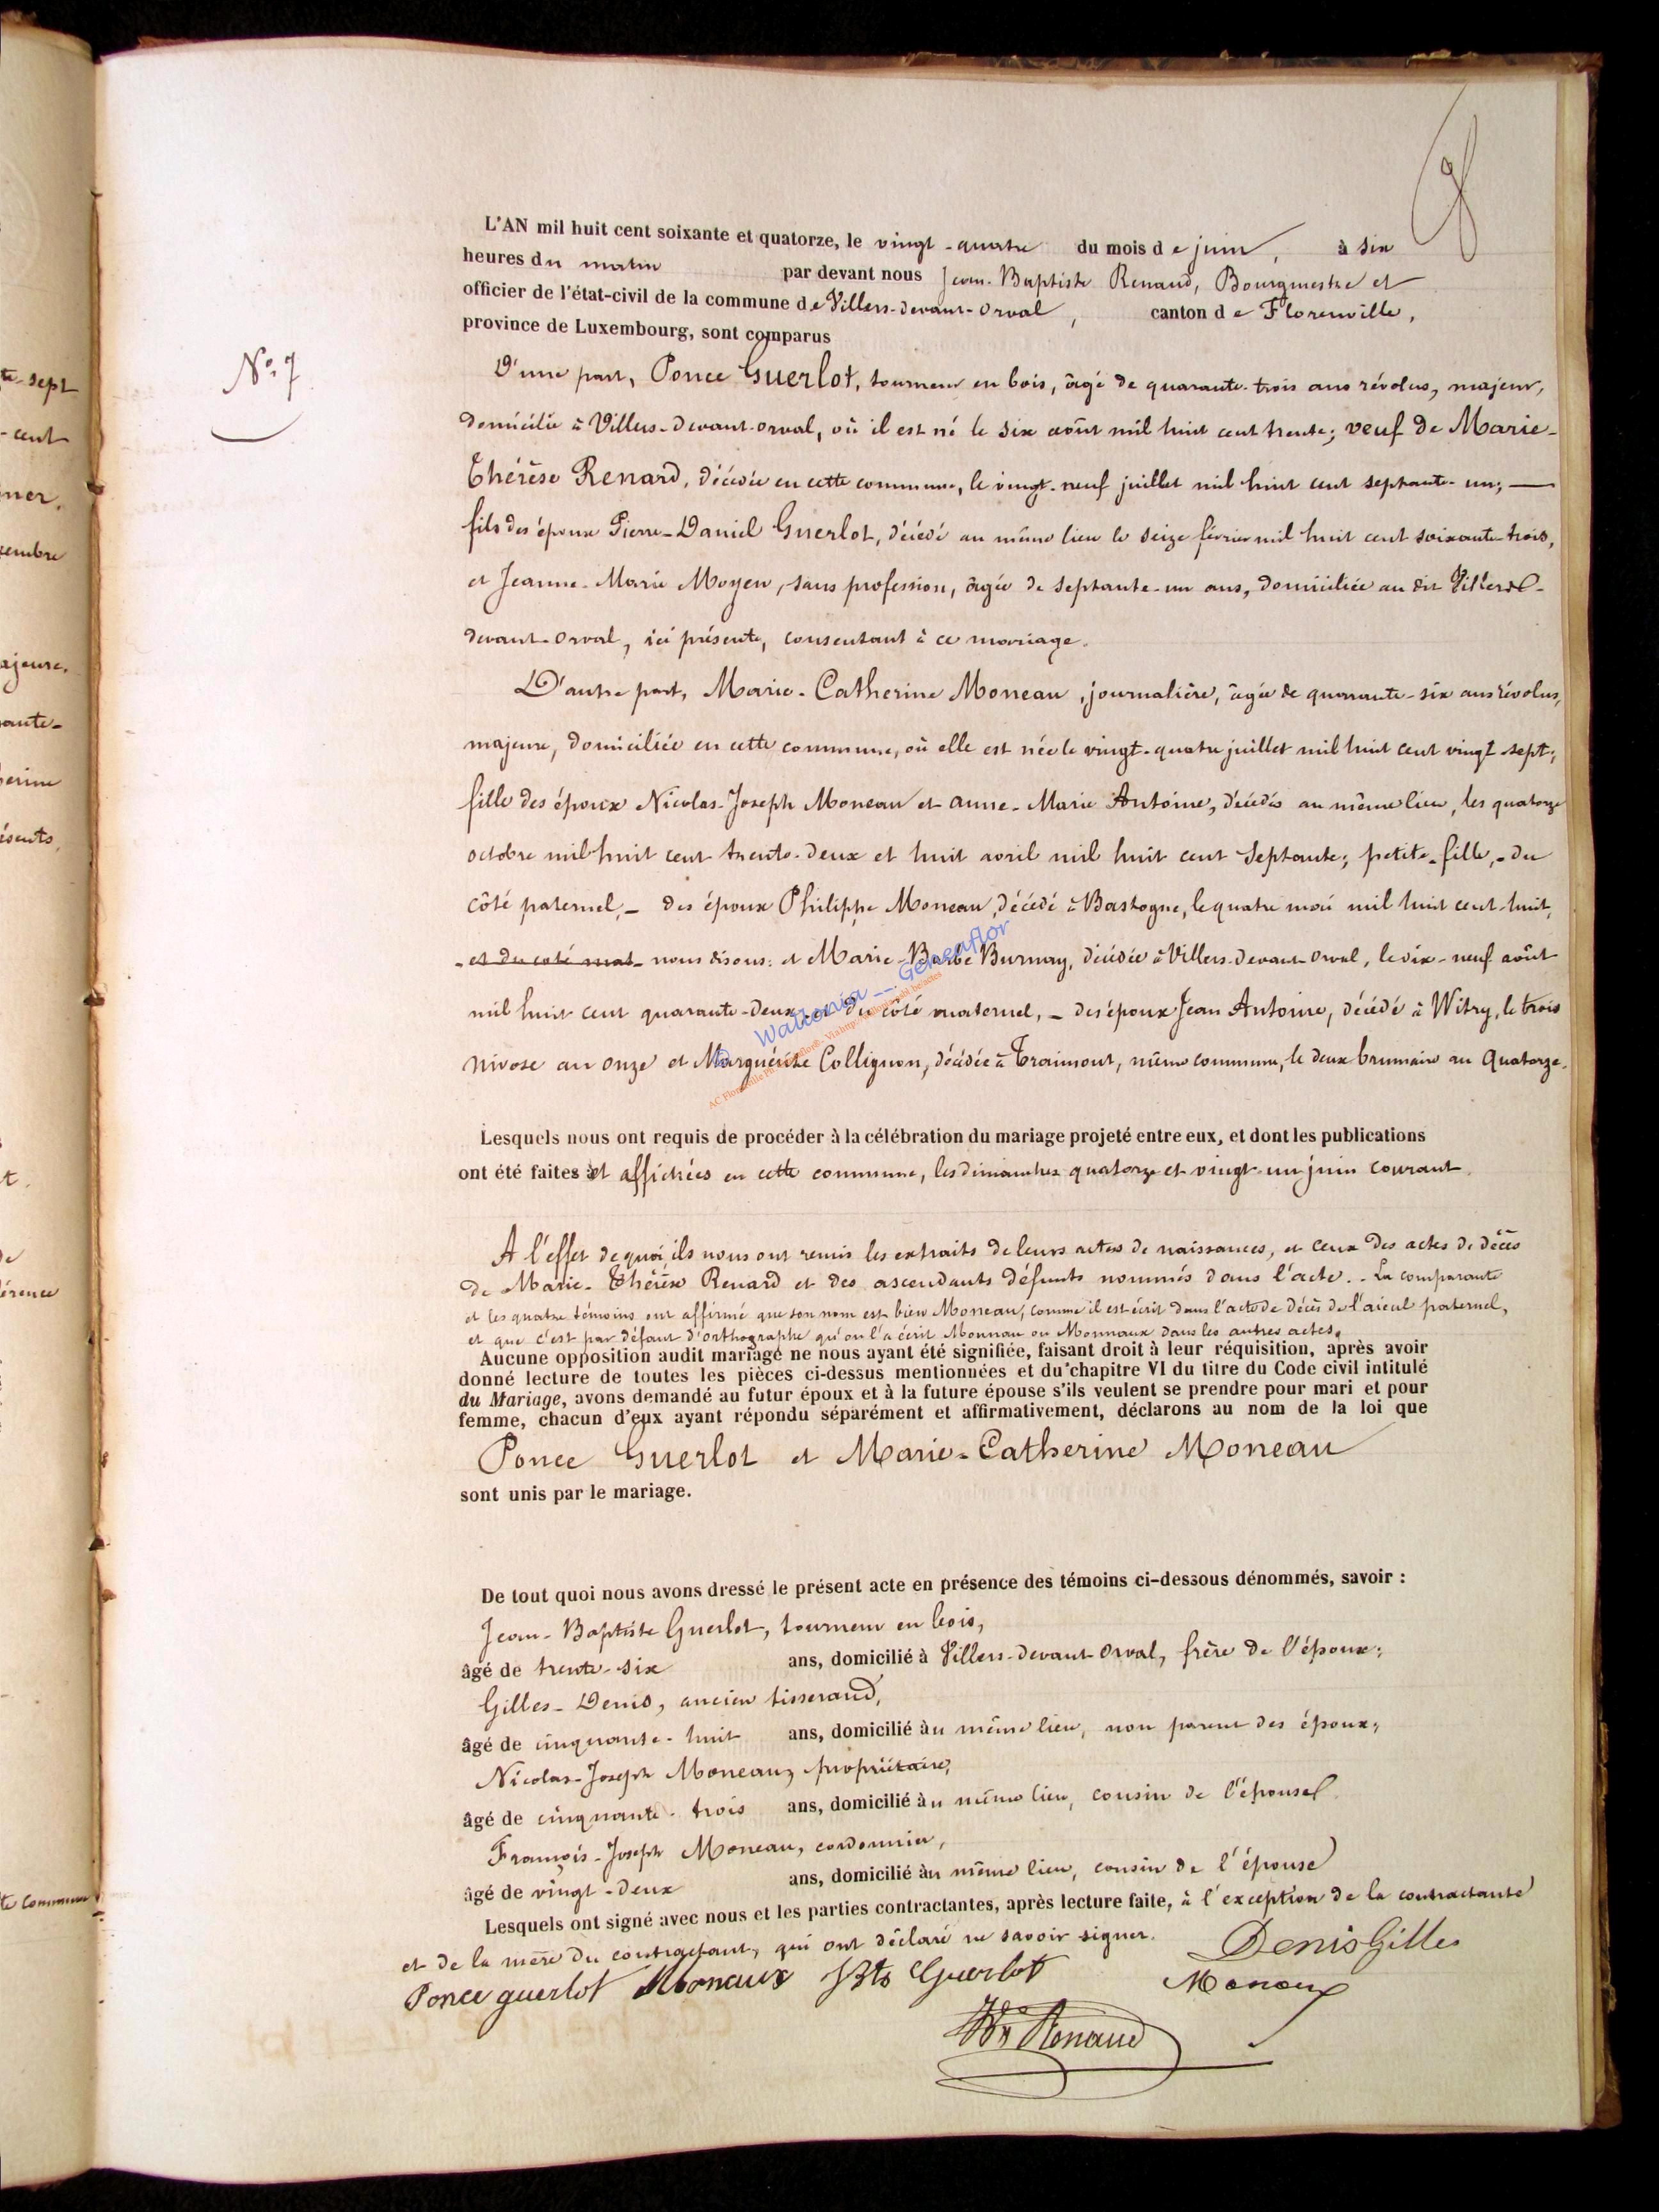 L'AN mil huit cent soixante et quatorze, le vingt-quatre du mois de juin, à six
heures du matin par devant nous Jean-Baptiste Renaud, Bourgmestre et
officier de l'état-civil de la commune de Villers-devant-Orval, canton de Florenville,
province de Luxembourg, sont comparus
N° 7
D'une part, Ponce Guerlot, tourneur en bois, âgé de quarante-trois ans révolus, majeur,
domicilié à Villers-devant-orval, où il est né le six août mil huit cent trente; veuf de Marie-
Thérèse Renard, décédée en cette commune, le vingt-neuf juillet mil huit cent septante-un; —
fils des époux Pierre-Daniel Guerlot, décédé au même lieu le seize février mil huit cent soixante-trois,
et Jeanne-Marie Moyen, sans profession, âgée de septante-un ans, domiciliée au dit Villers-
devant-Orval, ici présente, consentant à ce mariage.
D'autre part, Marie-Catherine Moneau, journalière, âgée de quarante-six ans révolus,
majeure, domiciliée en cette commune, où elle est née le vingt-quatre juillet mil huit cent vingt-sept;
fille des époux Nicolas-Joseph Moneau et anne-Marie Antoine, décédés au même lieu, les quatorze
octobre mil huit cent trente-deux et huit avril mil huit cent septante; petite-fille, - du
côté paternel, - des époux Philippe Moneau, décédé à Bastogne, le quatre mai mil huit cent-huit,
- et du coté mat- nous disons: et Marie-Barbe Burnay, décédée à Villers-devant-Orval, le dix-neuf août
mil huit cent quarante-deux, et du côté maternel, - des époux Jean Antoine, décédé à Witry, le trois
nivose an onze et Marguérite Collignon, décédée à Traimont, même commune, le deux brumaire an quatorze.
Wallonia -- Geneaflor
Lesquels nous ont requis de procéder à la célébration du mariage projeté entre eux, et dont les publications
ont été faites et affichées en cette commune, les dimanches quatorze et vingt-un juin courant.
A l'effet de quoi, ils nous ont remis les extraits de leurs actes de naissances, et ceux des actes de décès
de Marie-Thérèse Renard et des ascendants défunts nommés dans l'acte. - La comparante
et les quatre témoins ont affirmé que son nom est bien Moneau, comme il est écrit dans l'acte de décès de l'aieul paternel,
et que c'est par défaut d'orthographe qu'on l'a écrit Monnau ou Monnaux dans les autres actes.
Aucune opposition audit mariage ne nous ayant été signifiée, faisant droit à leur réquisition, après avoir
donné lecture de toutes les pièces ci-dessus mentionnées et du chapitre VI du titre du Code civil intitulé
du Mariage, avons demandé au futur époux et à la future épouse s'ils veulent se prendre pour mari et pour
femme, chacun d'eux ayant répondu séparément et affirmativement, déclarons au nom de la loi que
Ponce Guerlot et Marie-Catherine Moneau
sont unis par le mariage.
De tout quoi nous avons dressé le présent acte en présence des témoins ci-dessous dénommés, savoir :
Jean-Baptiste Guerlot, tourneur en bois,
âgé de trente-six ans, domicilié à Villers-devant-Orval, frère de l'époux;
Gilles-Denis, ancien tisserand,
âgé de cinquante-huit ans, domicilié au même lieu, non parent des époux;
Nicolas-Joseph Moneau, propriétaire,
âgé de cinquante-trois ans, domicilié au même lieu, cousin de l'épouse
François-Joseph Moneau, cordonnier,
âgé de vingt-deux ans, domicilié au même lieu, cousin de l'épouse
Lesquels ont signé avec nous et les parties contractantes, après lecture faite, à l'exception de la contractante
et de la mère du contractant, qui ont déclaré ne savoir signer.
Denis Gilles
Ponce guerlot Moneaux JBte Guerlot
Renaud